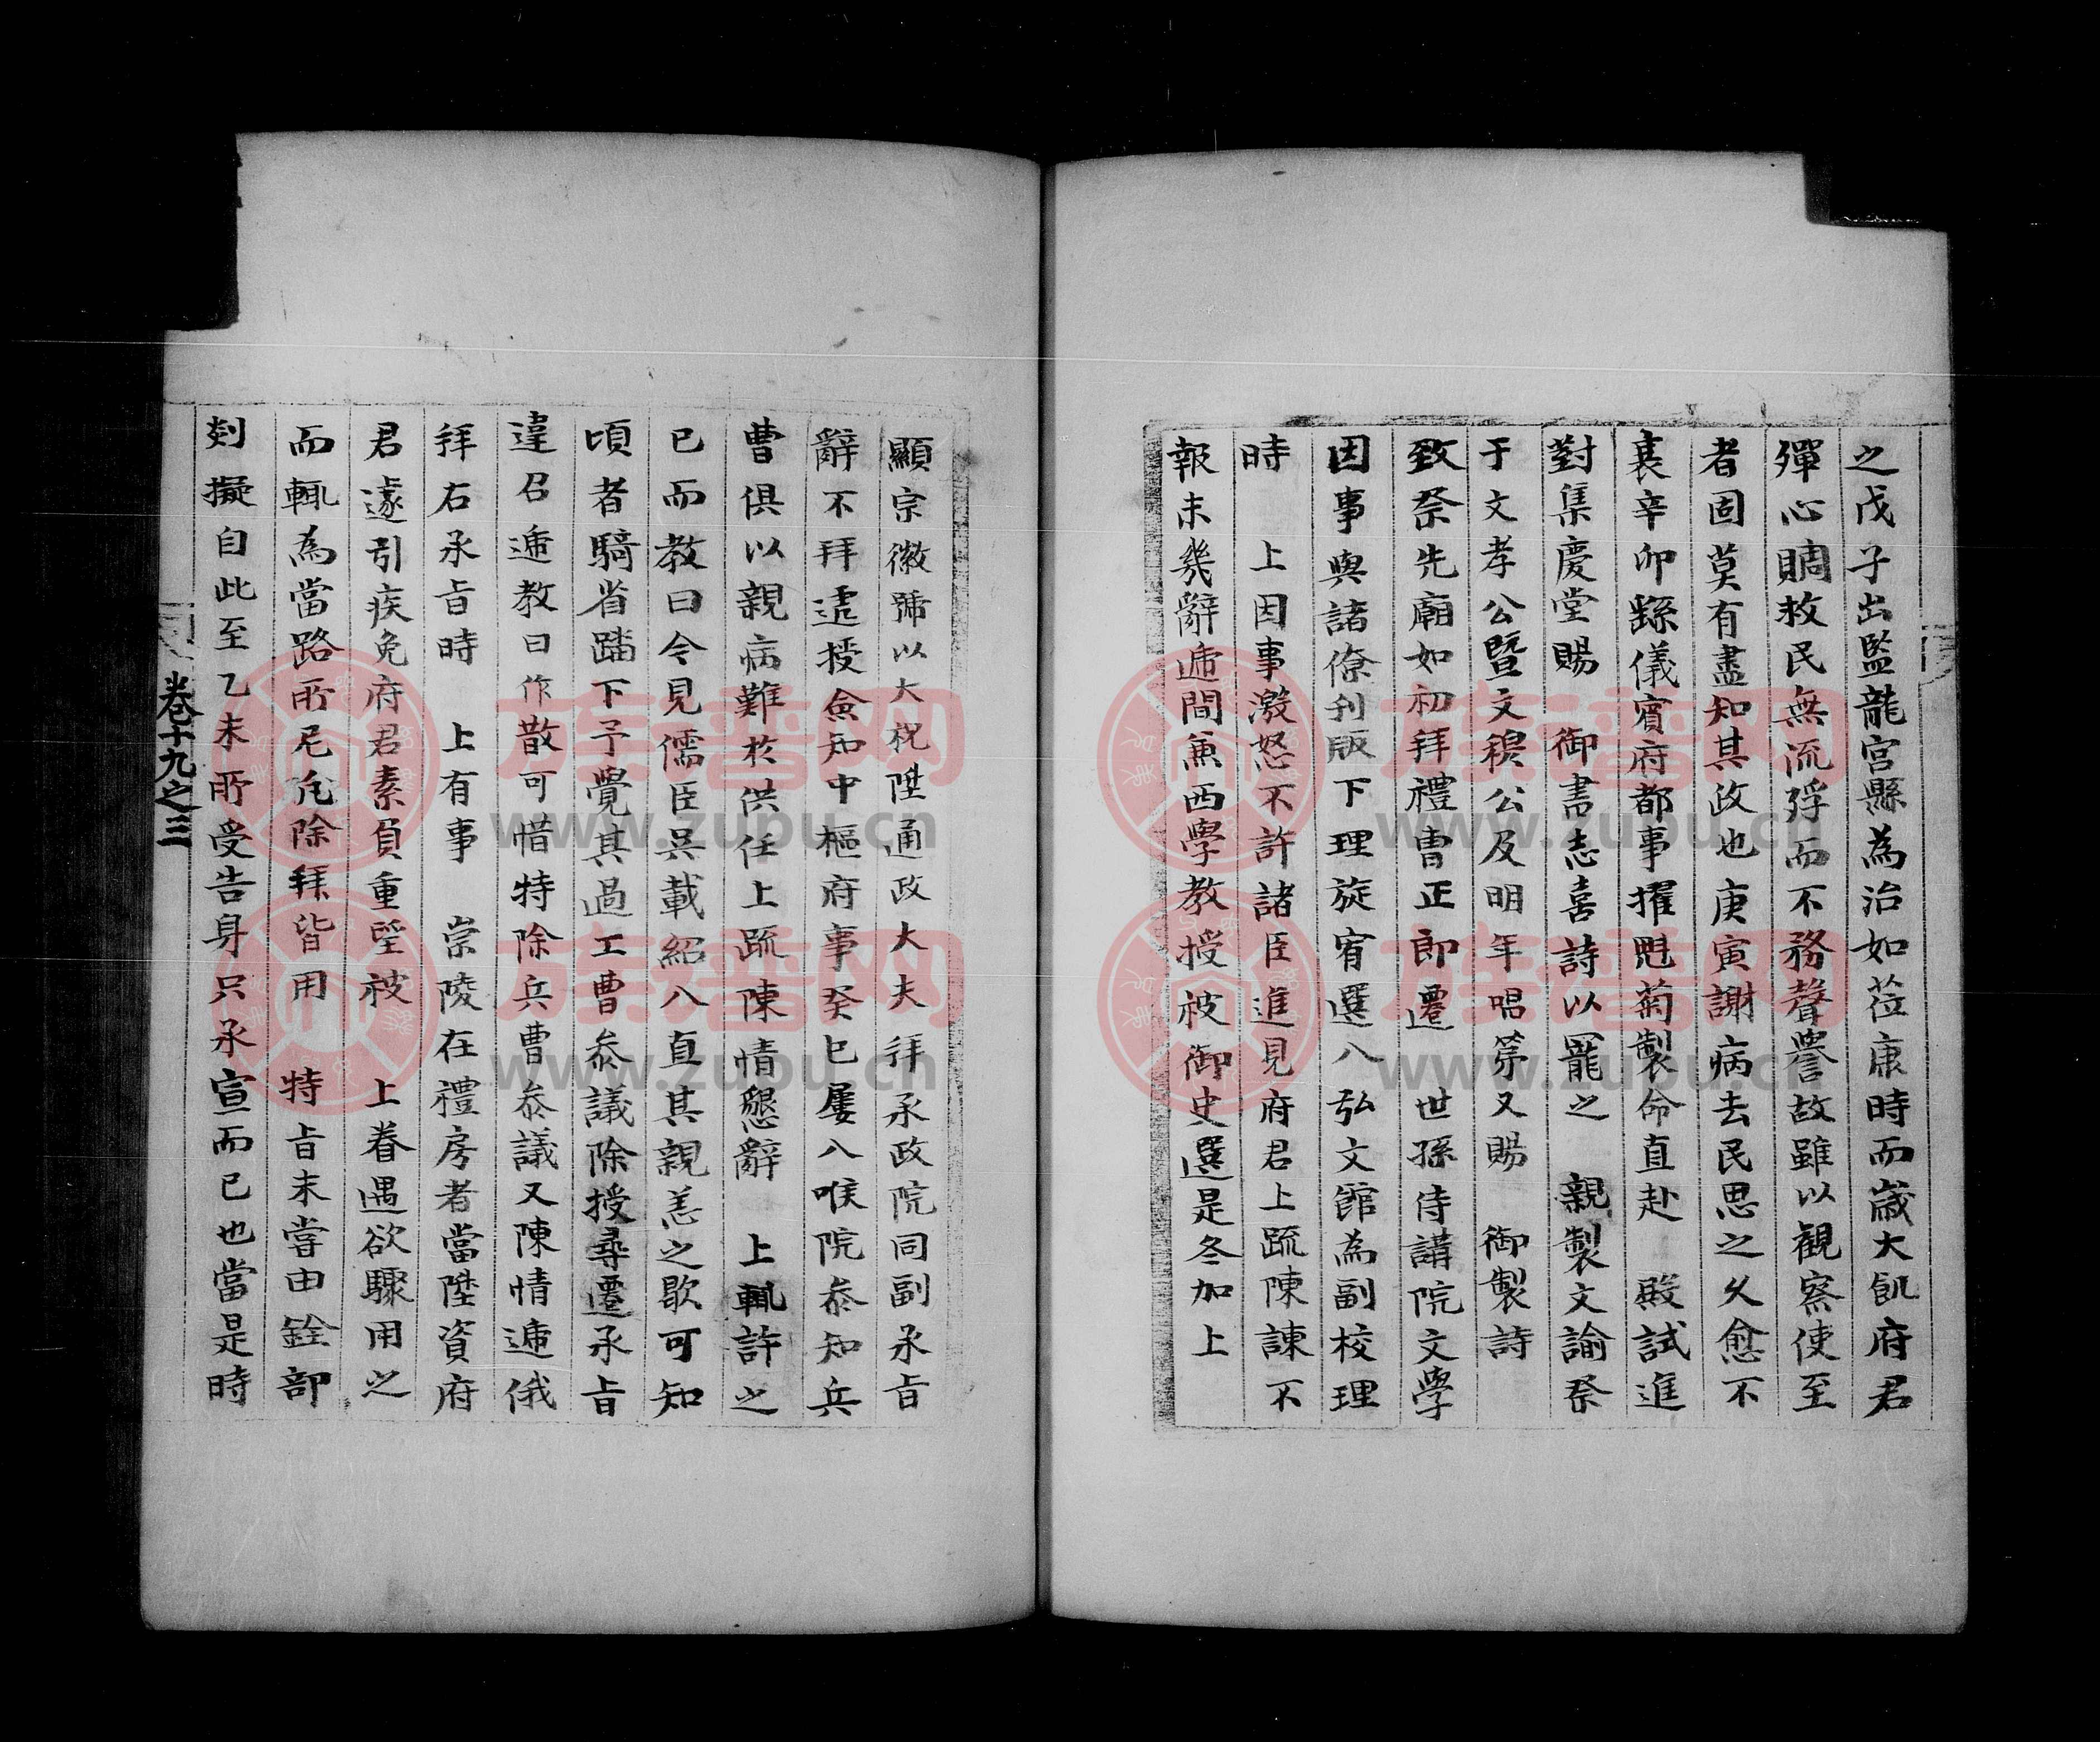 之戊子出監龍宮縣為治如莅康時而歲大飢府君
殫心賙救民無流殍而不務聲譽故雖以觀察使至
者固莫有盡知其政也庚寅謝病去民思之久愈不
衰辛卯繇儀賓府都事擢魁菊製命直赴 殿試進
對集慶堂賜 御書志喜詩以罷之 親製文諭祭
于文孝公暨文穆公及明年唱第又賜 御製詩
致祭先廟如初拜禮曹正郎遷 世孫侍講院文學
因事與諸僚刋版下理旋宥選入弘文館為副校理
時 上因事激怒不許諸臣進見府君上疏陳諫不
報未幾辭遞間兼西學教授被御史選是冬加上
顯宗徽號以大祝陞通政大夫拜承政院同副承旨
辭不拜遞授僉知中樞府事癸巳屢入喉院叅知兵
曹俱以親病難於供任上疏陳情懇辭 上輒許之
已而教曰今見儒臣吳載紹入直其親恙之歇可知
頃者騎省踏下予覺其過工曹叅議除授尋遷承旨
違召遞教曰作散可惜特除兵曹叅議又陳情遞俄
拜右承旨時 上有事 崇陵在禮房者當陞資府
君遂引疾免府君素負重望被 上眷遇欲驟用之
而輒為當路所尼凡除拜皆用 特旨未嘗由銓部
剡擬自此至乙未所受告身只承宣而已也當是時
卷十九之三
族譜网
www.zupu.cn
族譜网
www.zupu.cn
族譜网
www.zupu.cn
族譜网
www.zupu.cn